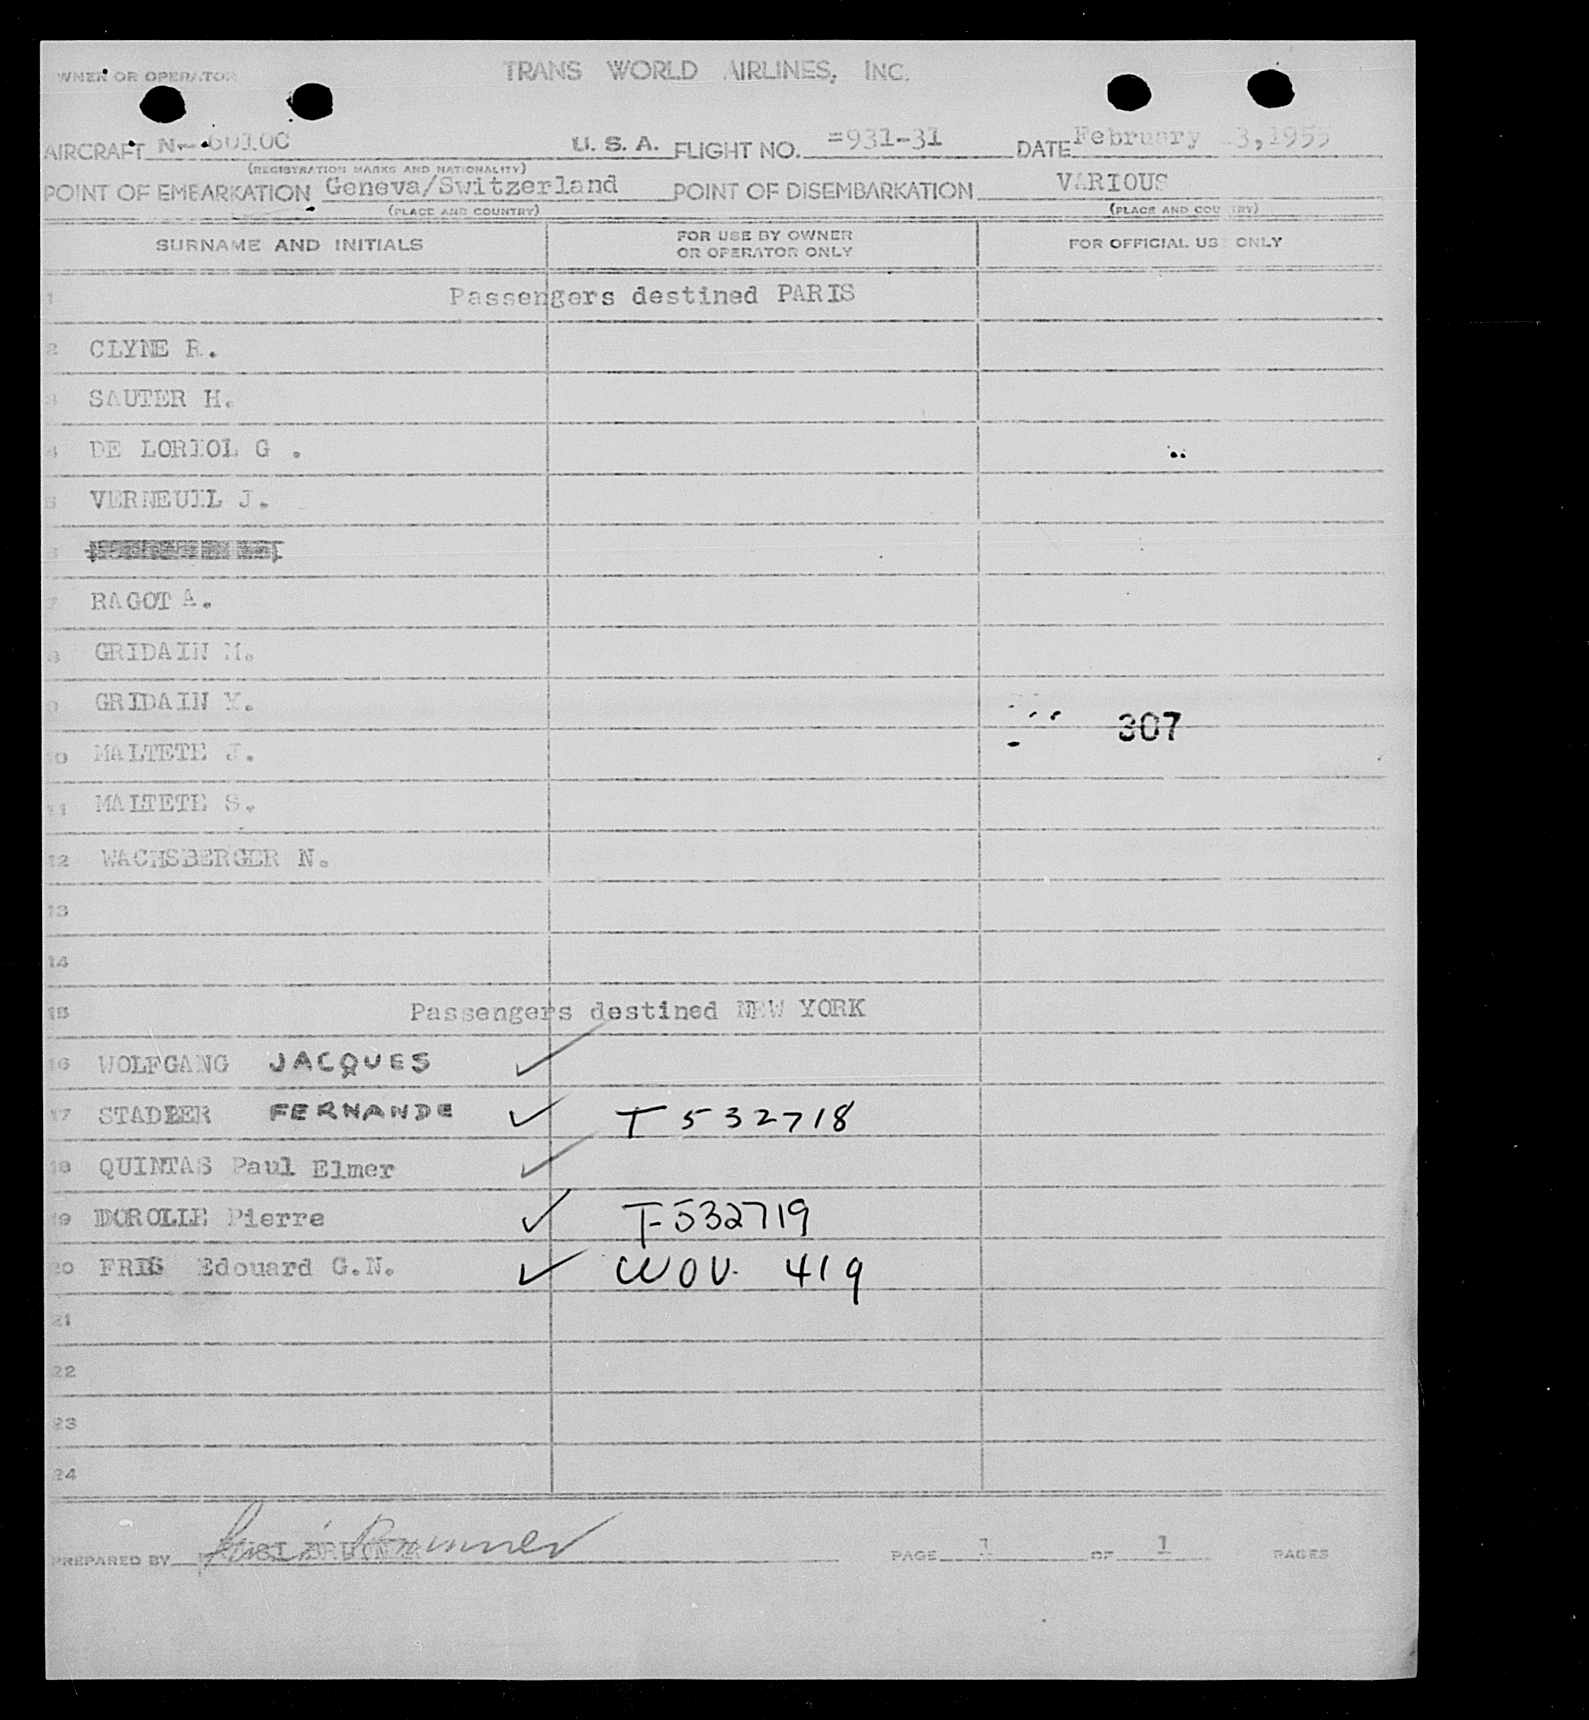 WNER OR OPERATOR TRANS WORLD AIRLINES, INC.
AIRCRAFT N-6010C U. S. A. FLIGHT NO. =931-31 DATE February 3,1955
(REGISTRATION MARKS AND NATIONALITY)
POINT OF EMBARKATION Geneva/Switzerland POINT OF DISEMBARKATION VARIOUS
(PLACE AND COUNTRY) (PLACE AND COUNTRY)
SURNAME AND INITIALS FOR USE BY OWNER OR OPERATOR ONLY FOR OFFICIAL USE ONLY
1 Passengers destined PARIS
2 CLYNE R.
3 SAUTER H.
4 DE LORIOL G .
5 VERNEUIL J.
6
7 RAGOT A.
8 GRIDAIN M.
9 GRIDAIN Y.
307
10 MALTETE J.
11 MALTETE S.
12 WACHSBERGER N.
13
14
15 Passengers destined NEW YORK
16 WOLFGANG JACQUES ✓
17 STADLER FERNANDE ✓ T 532718
18 QUINTAS Paul Elmer ✓
19 DOROLLE Pierre ✓ T-532719
20 FRIS Edouard G.N. ✓ WOV. 419
21
22
23
24
PREPARED BY PAGE 1 OF 1 PAGES